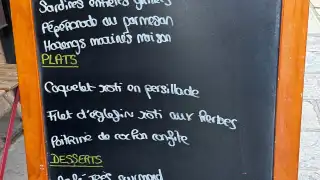 Sardines entières grillées
Pépérorade au parmesan
Harengs marinés maison
PLATS
Coquelet rôti en persillade
Filet d'eglefin rôti aux Herbes
Poitrine de cochon confite
DESSERTS